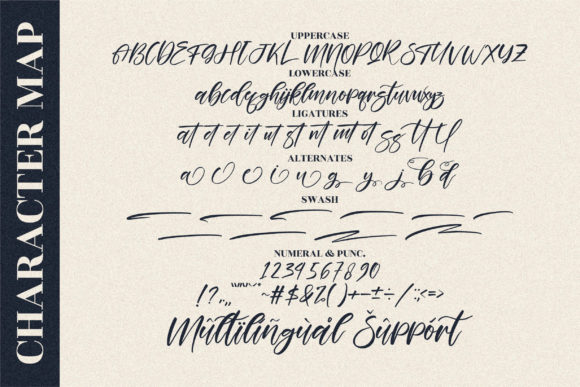 CHARACTER MAP
UPPERCASE
ABCDEFGHIJKLMNOPQRSTUVWXYZ
LOWERCASE
abcdefghijklmnopqrstuvwxyz
LIGATURES
at et it ut st nt mt ot ss tt ll
ALTERNATES
a e o i u g y j b d
SWASH
NUMERAL & PUNC.
1234567890
!?.,„ ~#$&%()+−±÷/:;<=>
Mûltïlîñgùål Šûppórt